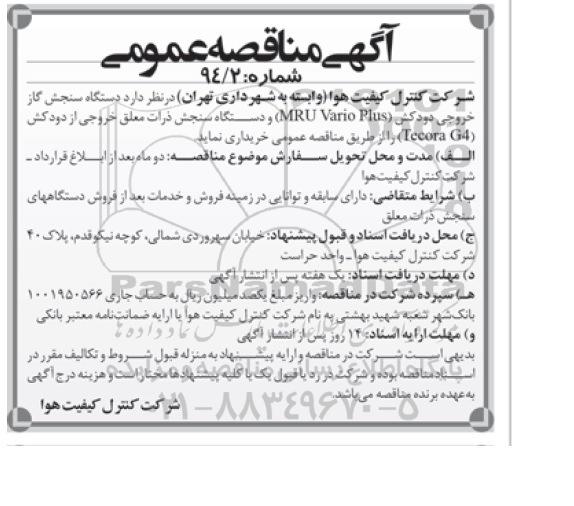 آگهی مناقصه عمومی
شماره: ۹۴/۲
شرکت کنترل کیفیت هوا (وابسته به شهرداری تهران) درنظر دارد دستگاه سنجش گاز
خروجی دودکش (MRU Vario Plus) و دستگاه سنجش ذرات معلق خروجی از دودکش
(Tecora G4) را از طریق مناقصه عمومی خریداری نماید.
الف) مدت و محل تحویل سفارش موضوع مناقصه: دو ماه بعد از ابلاغ قرارداد ـ
شرکت کنترل کیفیت هوا
ب) شرایط متقاضی: دارای سابقه و توانایی در زمینه فروش و خدمات بعد از فروش دستگاههای
سنجش ذرات معلق
ج) محل دریافت اسناد و قبول پیشنهاد: خیابان سهروردی شمالی، کوچه نیکوقدم، پلاک ۴۰
شرکت کنترل کیفیت هوا ـ واحد حراست
د) مهلت دریافت اسناد: یک هفته پس از انتشار آگهی
هـ) سپرده شرکت در مناقصه: واریز مبلغ یکصد میلیون ریال به حساب جاری ۱۰۰۱۹۵۰۵۶۶
بانک شهر شعبه شهید بهشتی به نام شرکت کنترل کیفیت هوا یا ارایه ضمانت‌نامه معتبر بانکی
و) مهلت ارایه اسناد: ۱۴ روز پس از انتشار آگهی
بدیهی است شرکت در مناقصه و ارایه پیشنهاد به منزله قبول شروط و تکالیف مقرر در
اسناد مناقصه بوده و شرکت در رد یا قبول یک یا کلیه پیشنهادها مختار است و هزینه درج آگهی
به عهده برنده مناقصه می‌باشد.
شرکت کنترل کیفیت هوا
ParsNamadData
۰۲۱-۸۸۳۴۹۶۷۰-۵